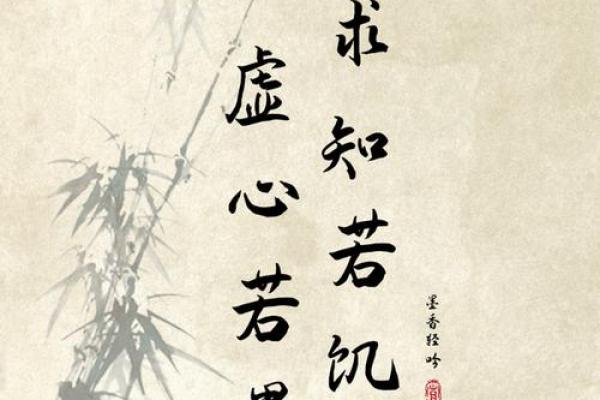 求知若饥
虚心若
墨香轻吟